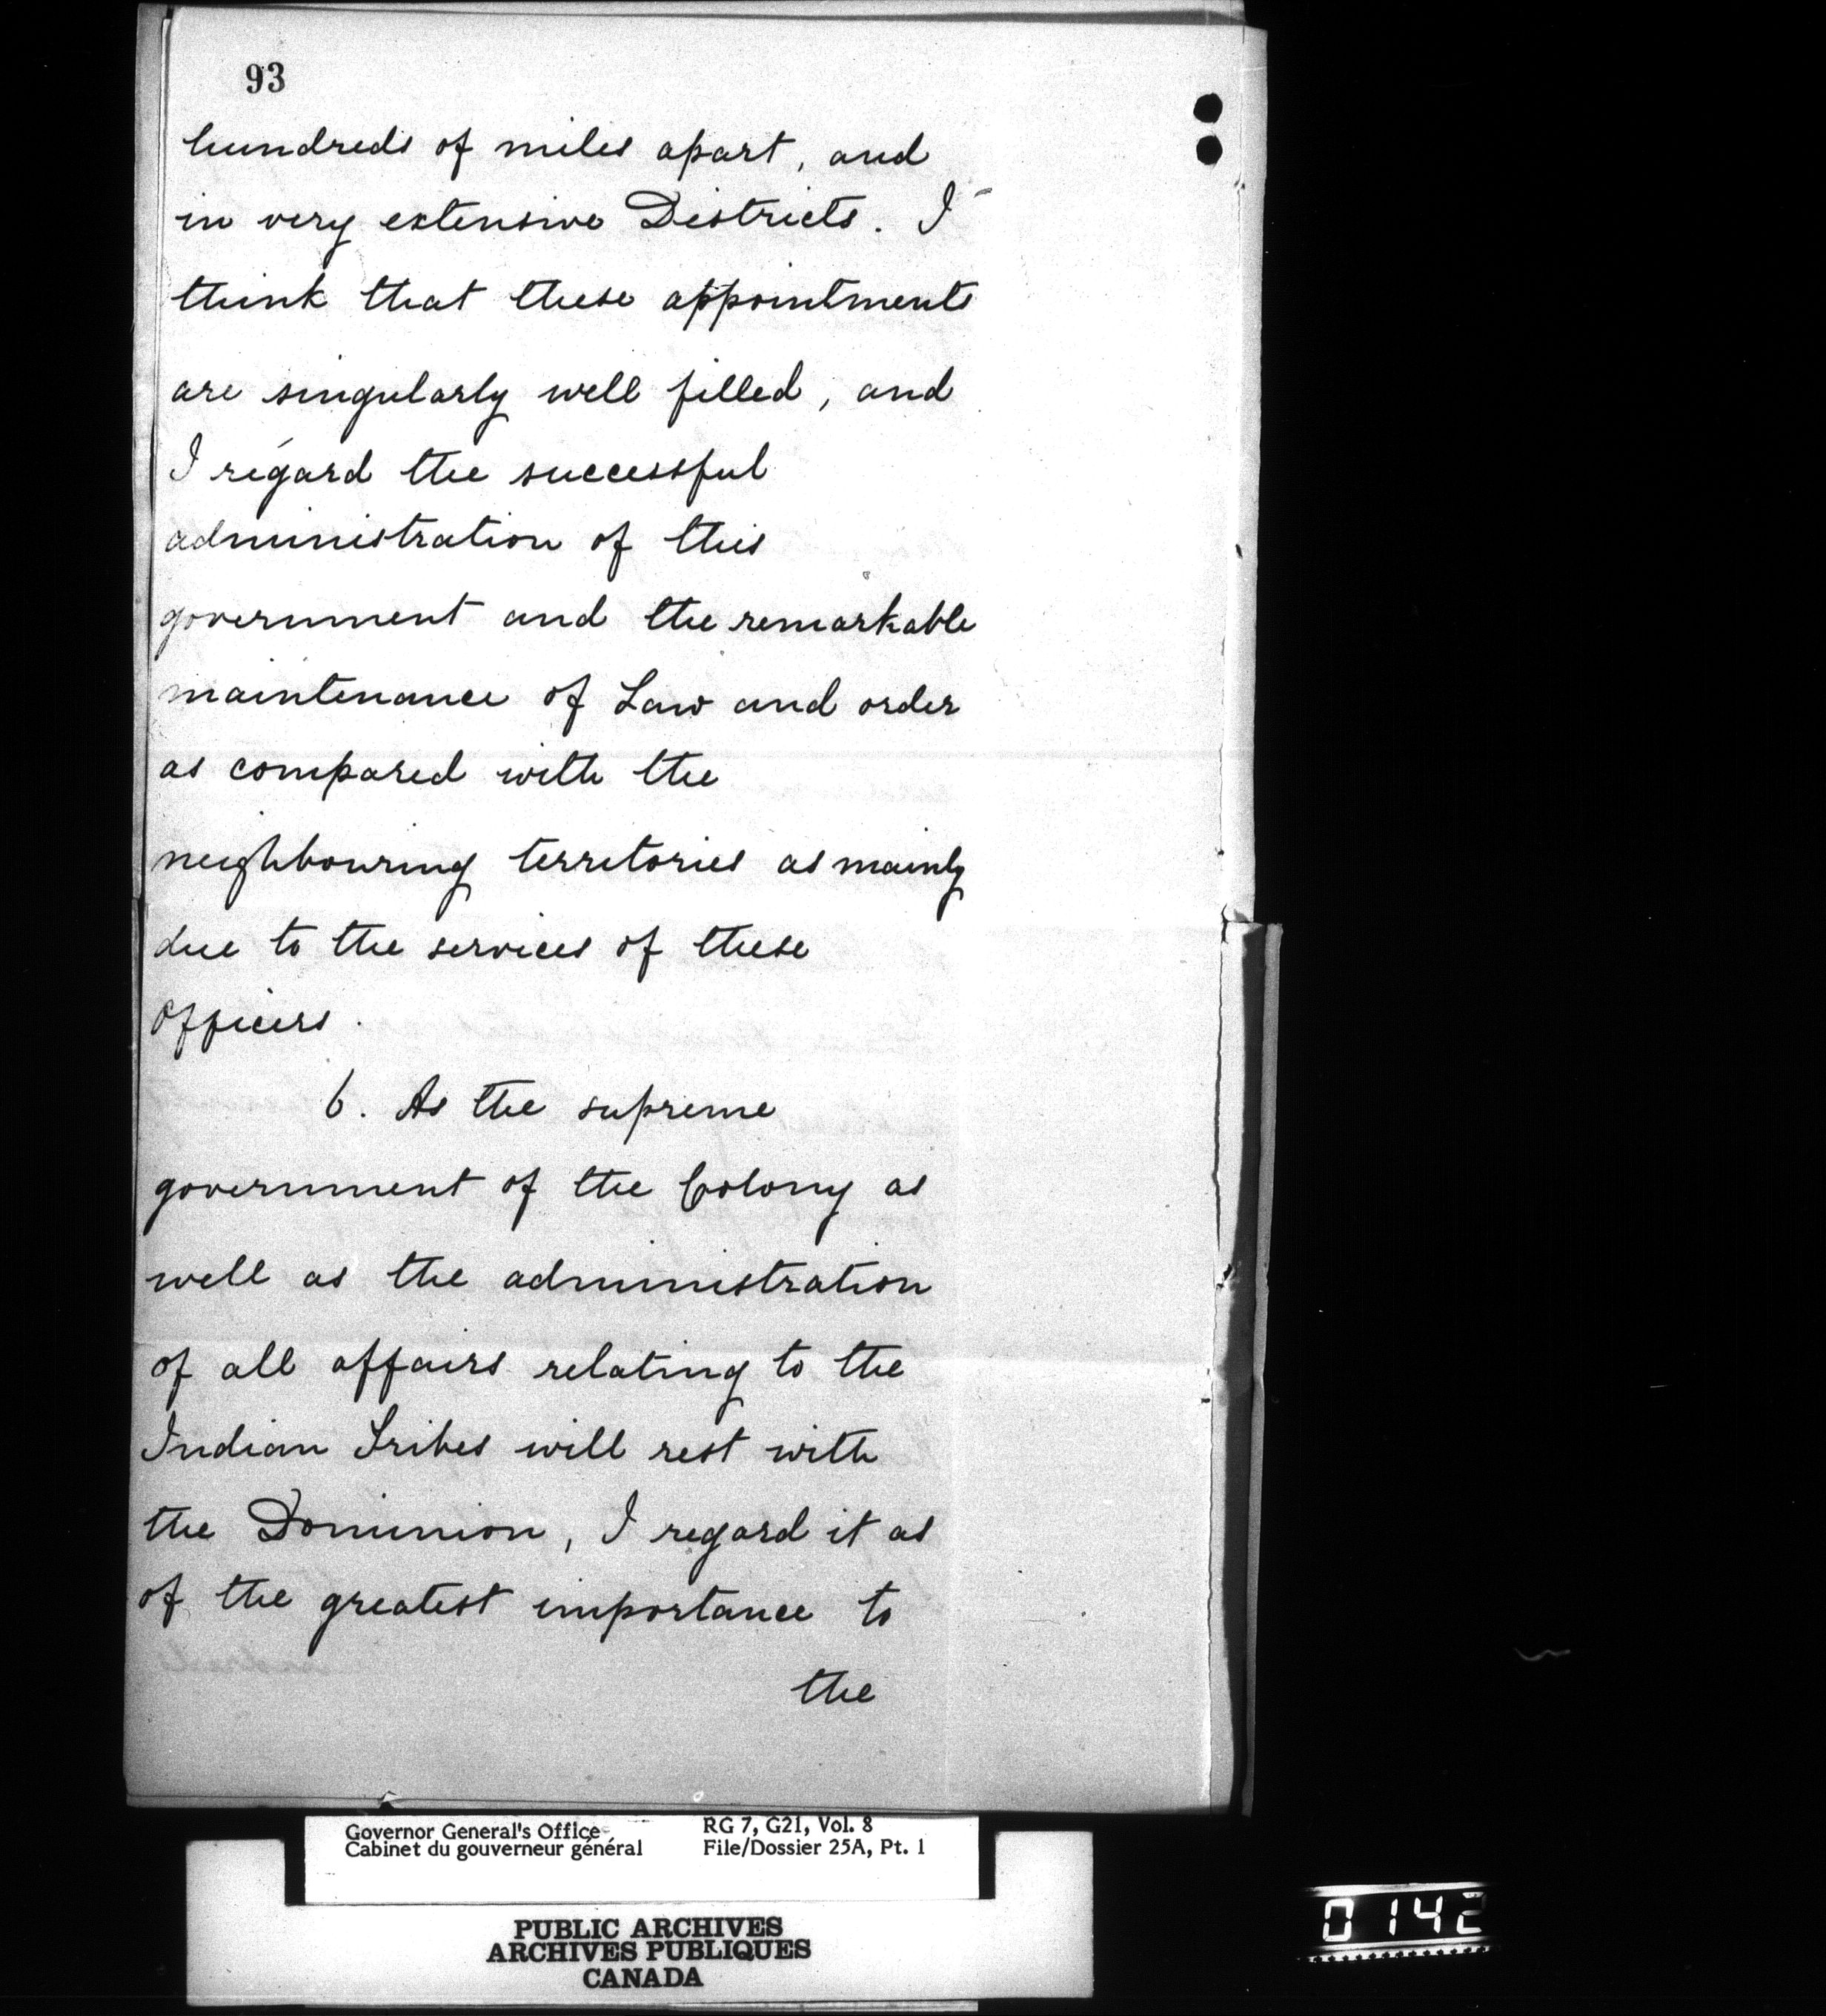 93
hundreds of miles apart, and
in very extensive Districts. I
think that these appointments
are singularly well filled, and
I regard the successful
administration of this
government and the remarkable
maintenance of Law and order
as compared with the
neighbouring territories as mainly
due to the services of these
officers.
6. As the supreme
government of the Colony as
well as the administration
of all affairs relating to the
Indian Tribes will rest with
the Dominion, I regard it as
of the greatest importance to
the
Governor General's Office
Cabinet du gouverneur général
RG 7, G21, Vol. 8
File/Dossier 25A, Pt. 1
PUBLIC ARCHIVES
ARCHIVES PUBLIQUES
CANADA
0142